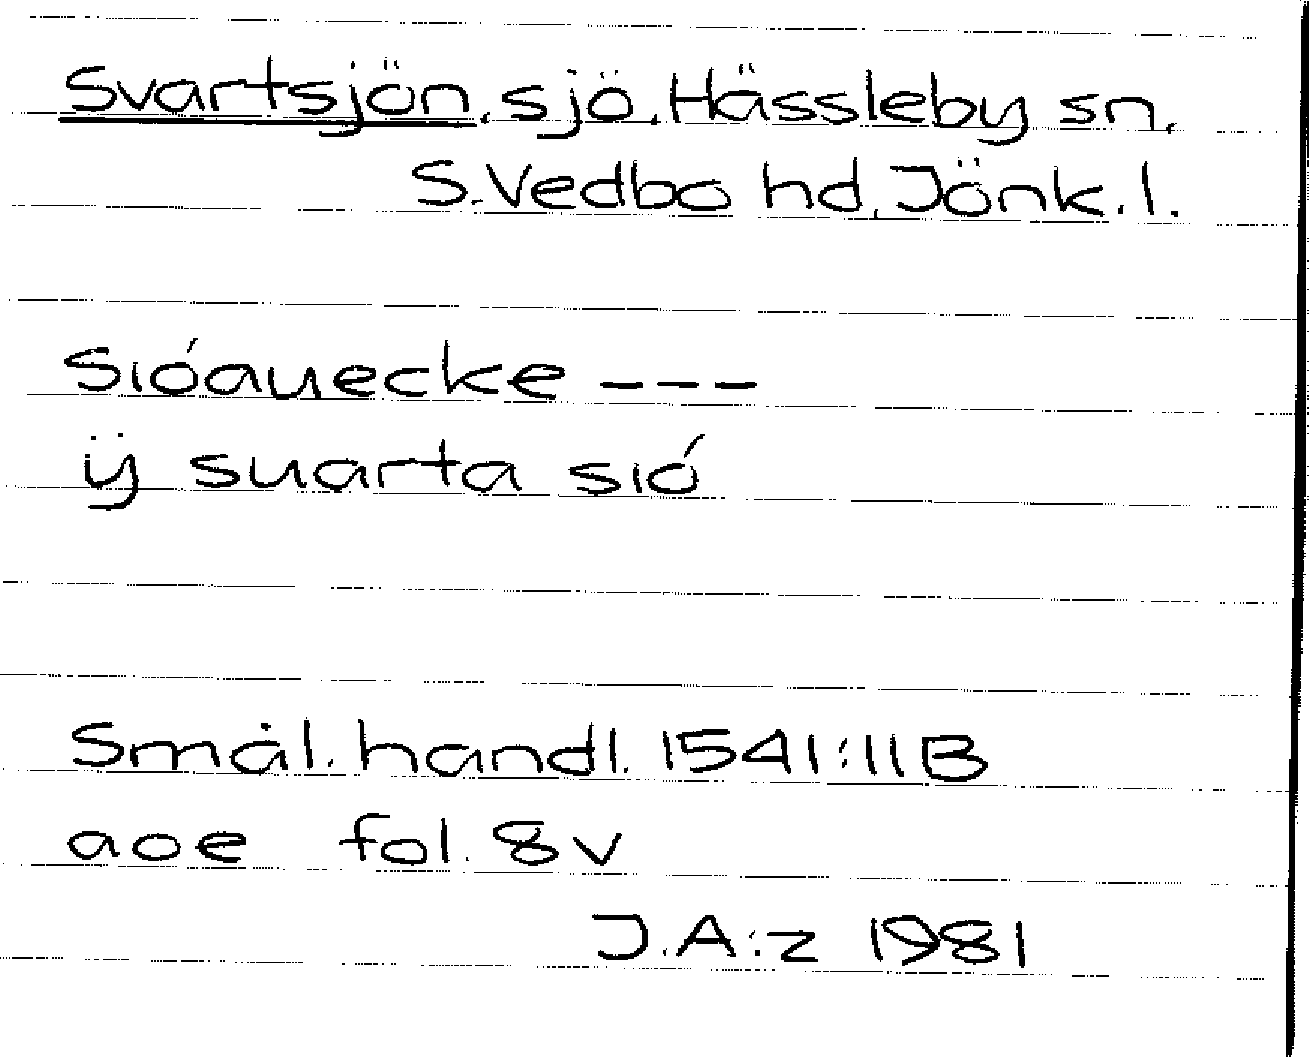 Svartsjön, sjö, Hässleby sn,
S. Vedbo hd, Jönk. l.
Sióauecke ---
ÿ suarta sió
Smål. handl. 1541:11B
aoe fol. 8v
J.A:z 1981